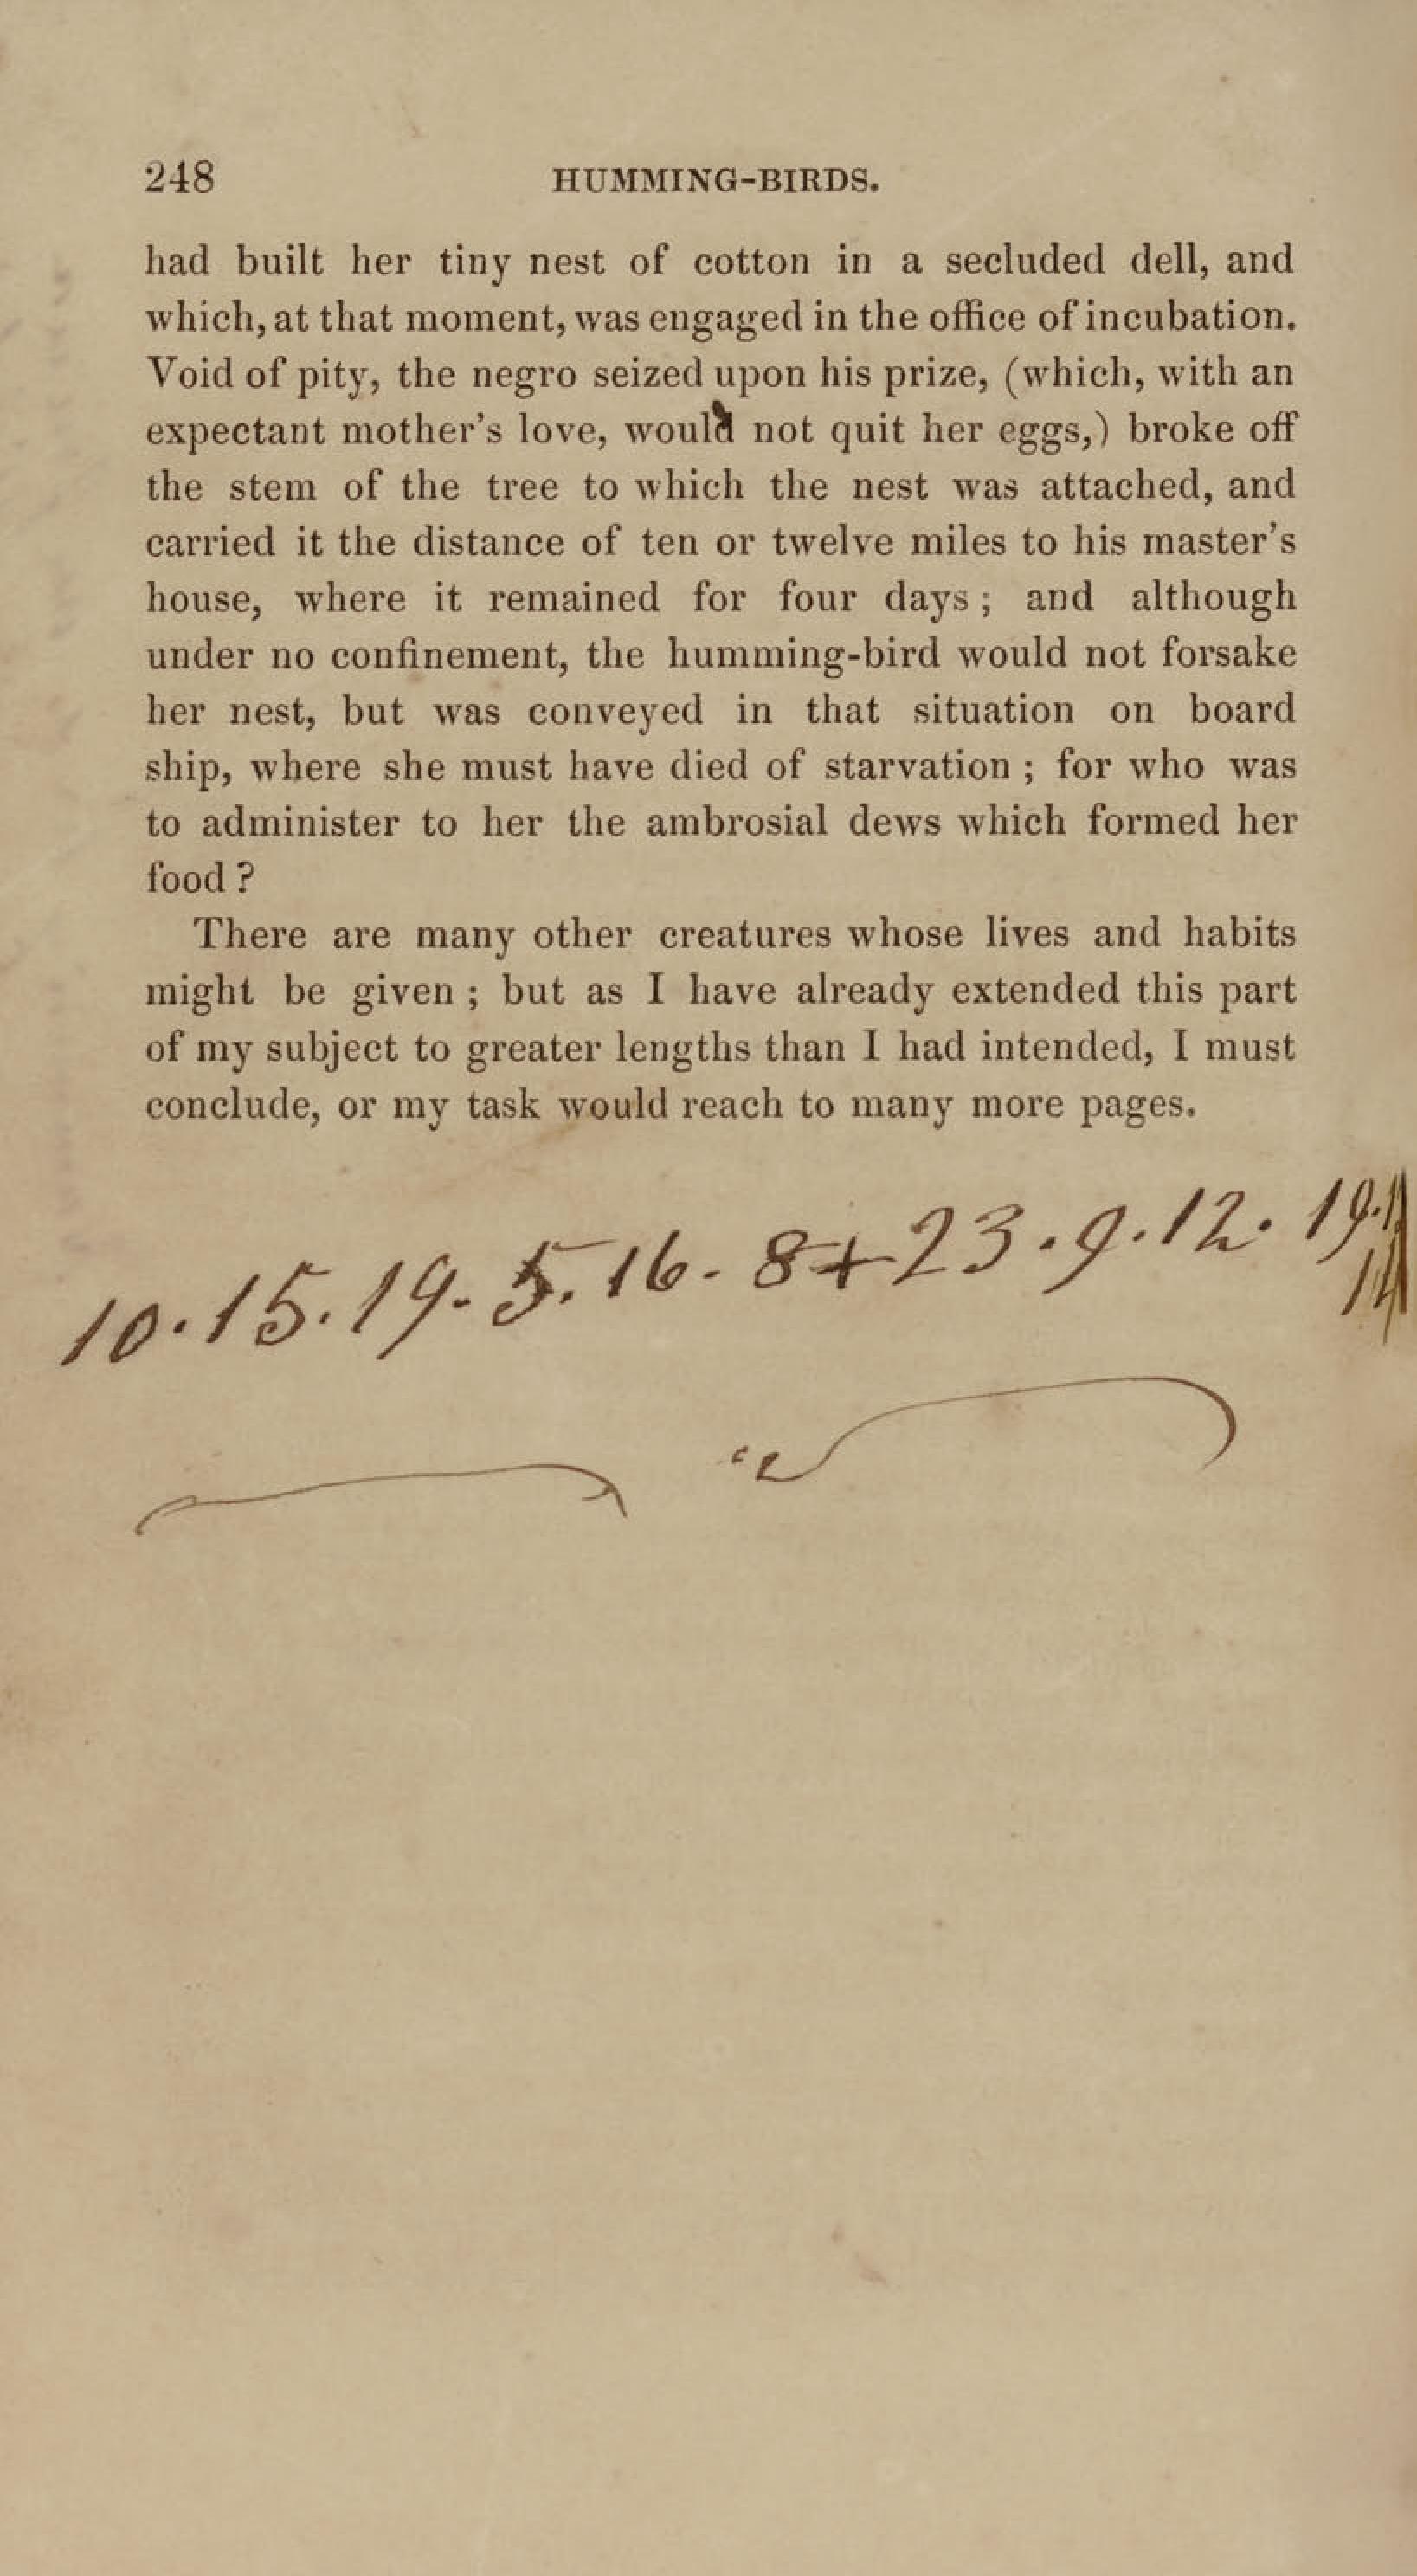 248 HUMMING-BIRDS.
had built her tiny nest of cotton in a secluded dell, and
which, at that moment, was engaged in the office of incubation.
Void of pity, the negro seized upon his prize, (which, with an
expectant mother's love, would not quit her eggs,) broke off
the stem of the tree to which the nest was attached, and
carried it the distance of ten or twelve miles to his master's
house, where it remained for four days; and although
under no confinement, the humming-bird would not forsake
her nest, but was conveyed in that situation on board
ship, where she must have died of starvation; for who was
to administer to her the ambrosial dews which formed her
food?
There are many other creatures whose lives and habits
might be given; but as I have already extended this part
of my subject to greater lengths than I had intended, I must
conclude, or my task would reach to many more pages.
10.15.19.5.16.8+23.9.12.19.
14